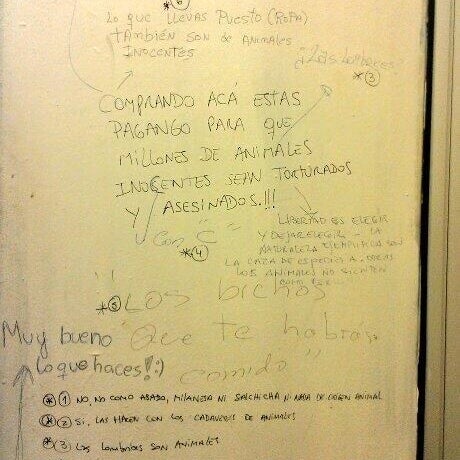 *(6)
Lo que LLEVAS PUESTO (ROPA)
también son de animales
INOCENTES
"¿Las lombrices"
*(3)
COMPRANDO ACÁ ESTAS
PAGANGO PARA QUE
MILLONES DE ANIMALES
INOCENTES SEAN TORTURADOS
Y ASESINADOS.!!!
Con "C"
*(4)
LIBERTAD ES ELEGIR
Y DEJAR ELEGIR - LA
NATURALEZA EJEMPLIFICA CON
LA CAZA DE ESPECIE A
LOS ANIMALES NO SIENTEN
"
*(5) LOS bichos
Que te habrás
comido"
Muy bueno
lo que haces!:)
*(1) NO, NO COMO ASADO, MILANESA NI SALCHICHA NI NADA DE ORIGEN ANIMAL
*(2) SI, LAS HACEN CON LOS CADAVERES DE ANIMALES
*(3) LAS Lombrices SON ANIMALES